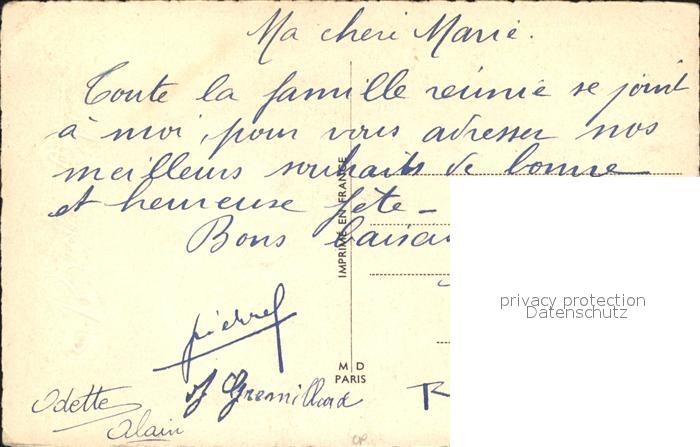 Ma cheri Marie.
Toute la famille réunie se joint
à moi, pour vous adresser nos
meilleurs souhaits de bonne
et heureuse fête _
Bons
IMPRIMÉ EN FRANCE
privacy protection
Datenschutz
pierre
M D
PARIS
Odette
Alain